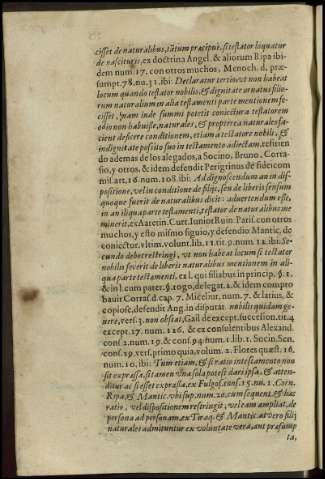 cisset de naturalibus, tātum præcipuè. si testator loquatur
de nascituris, ex doctrina Angel. & aliorum Ripa ibi-
dem num. 17. con otros muchos, Menoch. d. præ-
sumpt. 78. nu. 31. ibi: Declaratur tertio ut non habeat
locum quando testator nobilis, & dignitate ornatus filio-
rum naturalium in alia testamenti parte mentionem fe-
cisset, nam inde summi poterit coniectura testatorem
eos in non habuisse, naturales, & propterea naturales fa-
cient deficere conditionem, etiam a testatore nobili, &
indignitate posito suo in testamento adiectam, refirien-
do ademas de los alegados, a Socino, Bruno, Corra-
sio, y otros, & idem defendit Peregrinus de fideicom
miss. art. 26. num. 108. ibi: Ad dignoscendum an in dis-
positione, vel in conditione de filijs, seu de liberis sensum
quoque fuerit de naturalibus dicit aduertendum esse,
an in aliqua parte testamenti, testator de naturalibus me
minerit, ex Aretin. Curt. Iunior Ruin. Paris. con otros
muchos, y esto mismo siguio, y defendio Mantic. de
coniectur. vltim. volunt. lib. 11. tit. p. num. 12. ibi: Se-
cundo debet restringi, vt non habeat locum si testator
nobilis fecerit de liberis naturalibus mentionem in ali-
qua parte testamenti. ex l. qui filiabus in princip. §. 1.
& in l. cum pater. §. rogo, delegat. 2. & idem compro
bauit Corras. d. cap. 7. Micelint. num. 7. & latius, &
copiose, defendit Ang. in disputat. nobilis quidam ge-
nuere, vers. 3. non obstat, Gail de except. succession. tit. 4
except. 27. num. 126. & ex consulentibus Alexand.
cons. 2. num. 19. & cons. 94. num. 1. lib. 1. Socin. Sen.
cons. 29. vers. primo quia, volum. 2. Flores quæst. 16.
num. 10. ibi: Tum etiam, & si ratio in testamento non
sit expressa, sit autem vna sola potest dari ipsa, & atten-
ditur ac si esset expressa, ex Fulgos. cons. 15. nu. 1. Corn.
Ripa, & Mantic. vbi sup. num. 20. cum sequent. & hæc
ratio, vel dispositionem restringit, vel eam ampliat, de
persona ad personam, ex Tiraq. & Mantic. at vero filij
naturales admittuntur ex voluntate vera, aut præsump
ta,